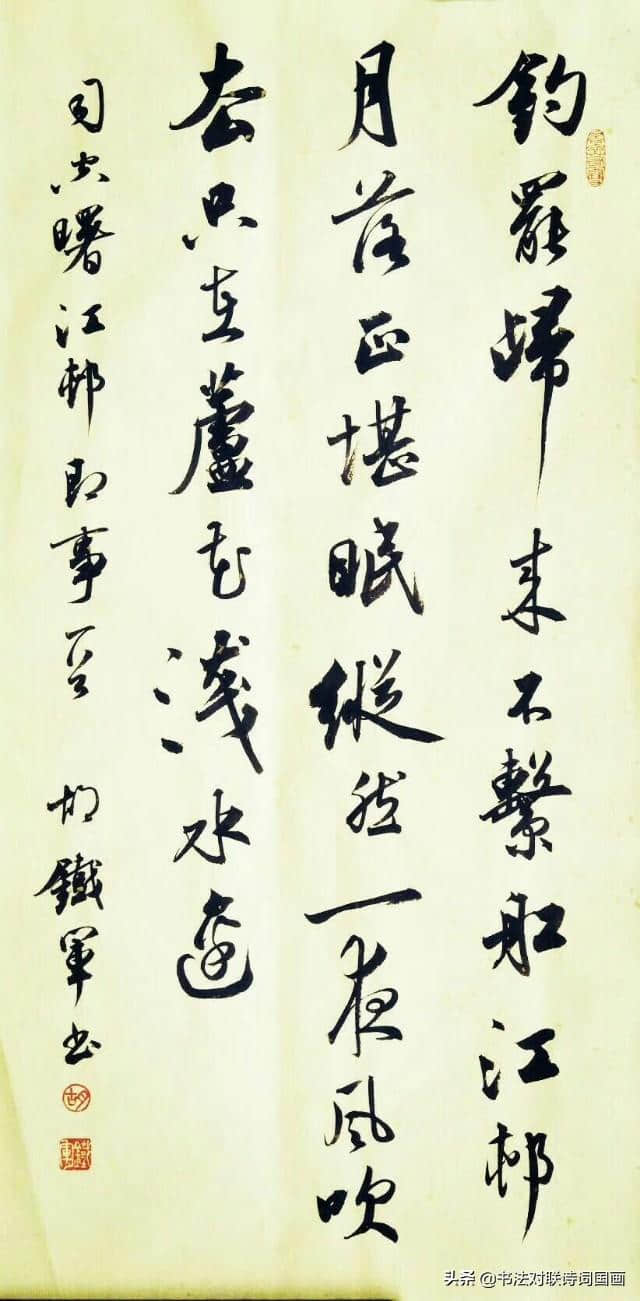 釣罷歸來不繫舡江邨
月落正堪眠縱然一夜風吹
去只在蘆花淺水邊
司空曙江邨即事一首 胡鐵軍书
胡
头条 @书法对联诗词国画